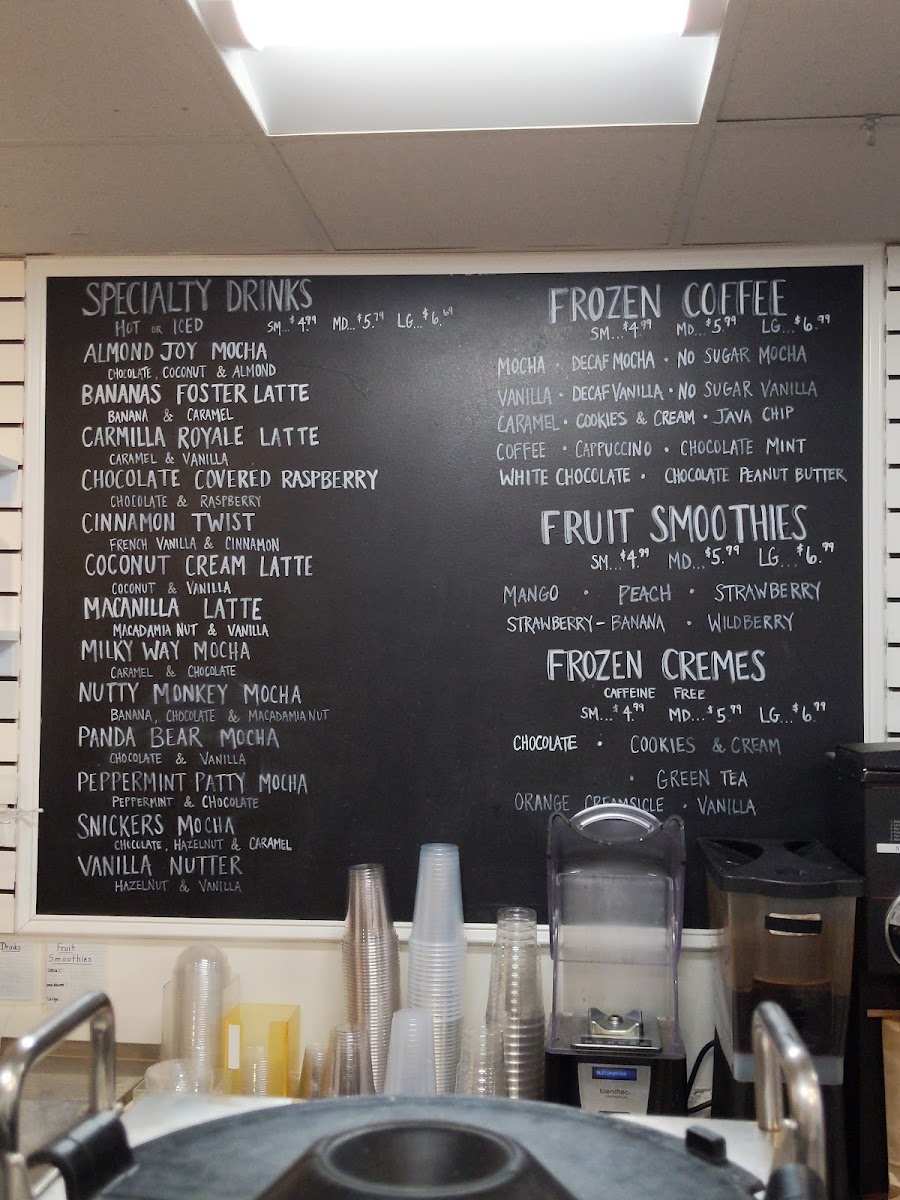 SPECIALTY DRINKS
HOT OR ICED SM...$4.99 MD...$5.79 LG...$6.69
ALMOND JOY MOCHA
CHOCOLATE, COCONUT & ALMOND
BANANAS FOSTER LATTE
BANANA & CARAMEL
CARMILLA ROYALE LATTE
CARAMEL & VANILLA
CHOCOLATE COVERED RASPBERRY
CHOCOLATE & RASPBERRY
CINNAMON TWIST
FRENCH VANILLA & CINNAMON
COCONUT CREAM LATTE
COCONUT & VANILLA
MACANILLA LATTE
MACADAMIA NUT & VANILLA
MILKY WAY MOCHA
CARAMEL & CHOCOLATE
NUTTY MONKEY MOCHA
BANANA, CHOCOLATE & MACADAMIA NUT
PANDA BEAR MOCHA
CHOCOLATE & VANILLA
PEPPERMINT PATTY MOCHA
PEPPERMINT & CHOCOLATE
SNICKERS MOCHA
CHOCOLATE, HAZELNUT & CARAMEL
VANILLA NUTTER
HAZELNUT & VANILLA
FROZEN COFFEE
SM...$4.99 MD...$5.99 LG...$6.99
MOCHA · DECAF MOCHA · NO SUGAR MOCHA
VANILLA · DECAF VANILLA · NO SUGAR VANILLA
CARAMEL · COOKIES & CREAM · JAVA CHIP
COFFEE · CAPPUCCINO · CHOCOLATE MINT
WHITE CHOCOLATE · CHOCOLATE PEANUT BUTTER
FRUIT SMOOTHIES
SM...$4.99 MD...$5.99 LG...$6.99
MANGO · PEACH · STRAWBERRY
STRAWBERRY-BANANA · WILDBERRY
FROZEN CREMES
CAFFEINE FREE
SM...$4.99 MD...$5.99 LG...$6.99
CHOCOLATE · COOKIES & CREAM
· GREEN TEA
ORANGE CREAMSICLE · VANILLA
Drinks
Fruit
Smoothies
blendtec